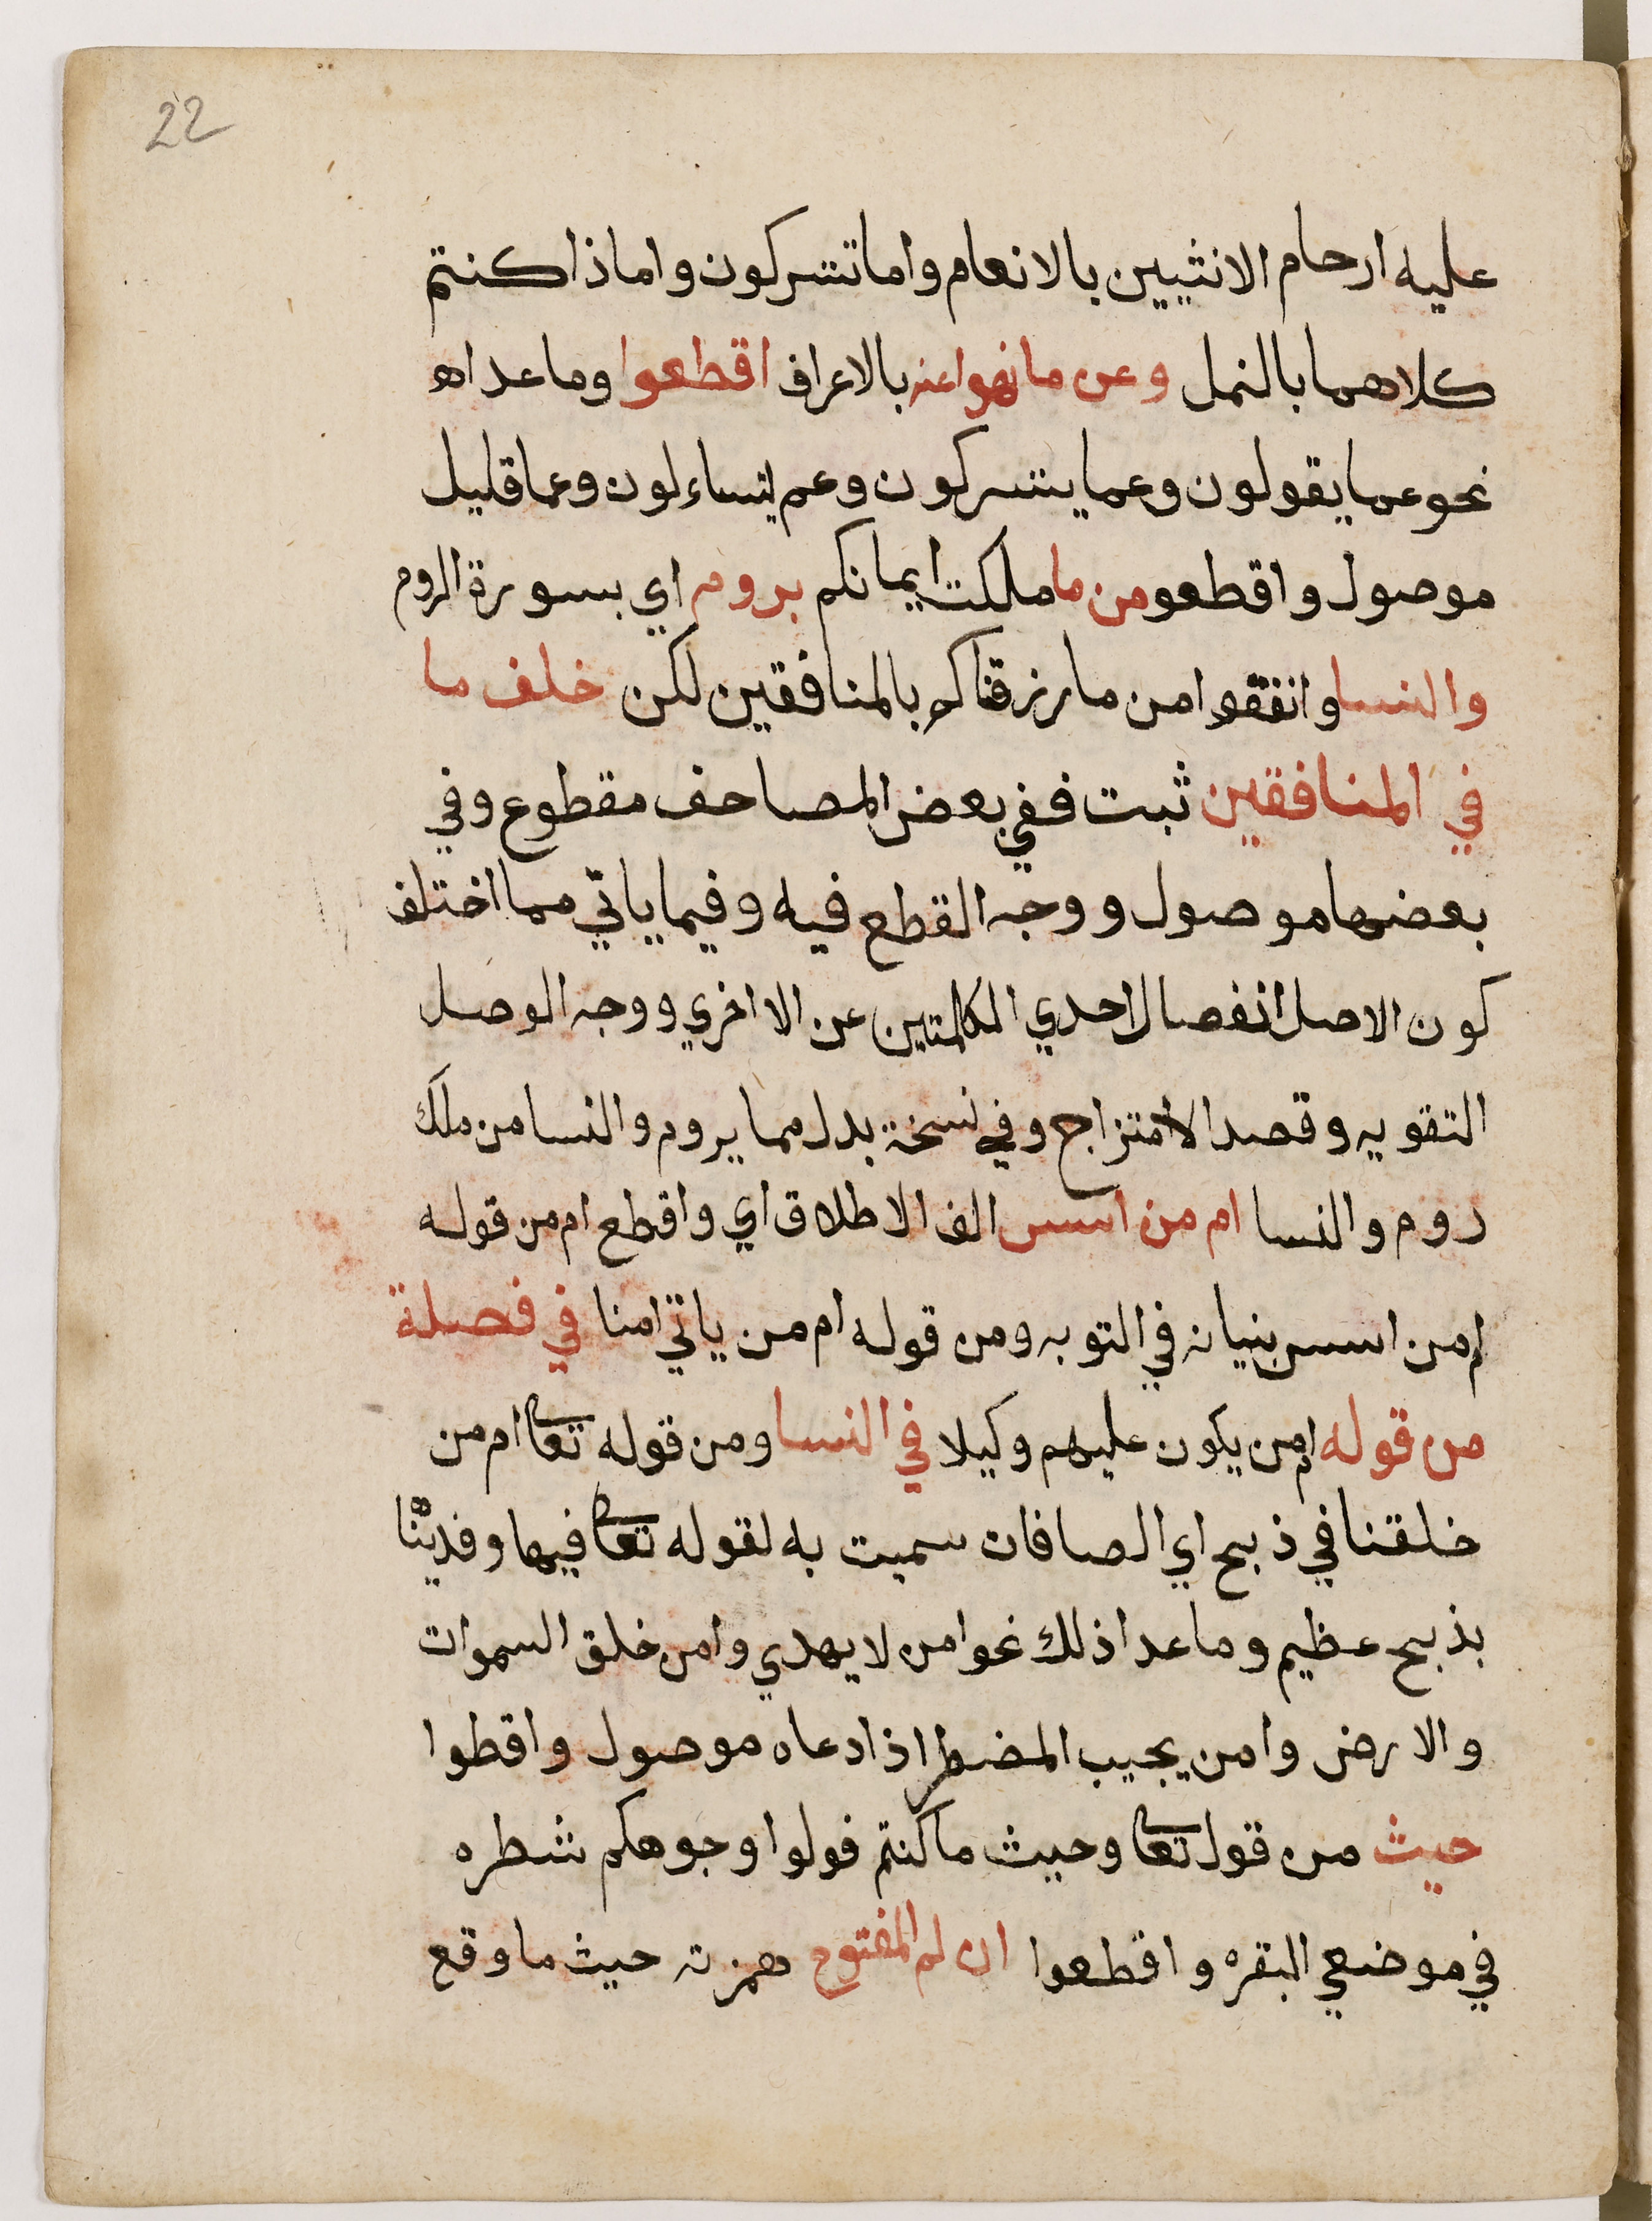 22
عليه ارحام الانثيين بالانعام واما تشركون واماذا كنتم
كلاهما بالنمل وعن ما نهوا عنه بالاعراف اقطعوا وما عداه
نحو عما يقولون وعما يشركون وعم يتساءلون وعما قليل
موصول واقطعو من ما ملكت ايمانكم بروم اي بسورة الروم
والنسا وانفقوا من ما رزقناكم بالمنافقين لكن خلف ما
في المنافقين ثبت ففي بعض المصاحف مقطوع وفي
بعضها موصول ووجه القطع فيه وفيما ياتي مما اختلف
كون الاصل انفصال احدي الكلمتين عن الاخري ووجه الوصل
التقويه وقصد الامتزاج وفي نسخة بدل مما بروم والنسا من ملك
روم والنسا ام من اسس الف الاطلاق اي واقطع ام من قوله
ام من اسس بنيانه في التوبه ومن قوله ام من ياتي امنا في فصلة
من قوله ام من يكون عليهم وكيلا في النسا ومن قوله تعا ام من
خلقنا في ذبح اي الصافات سميت به لقوله تعا فيها وفديّنا
بذبح عظيم وما عدا ذلك نحو امن لا يهدي وامن خلق السموات
والارض وامن يجيب المضطر اذا دعاه موصول واقطوا
حيث من قول تعا وحيث ما كنتم فولوا وجوهكم شطره
في موضعي البقره واقطعوا ان لم المفتوح همزته حيث ما وقع